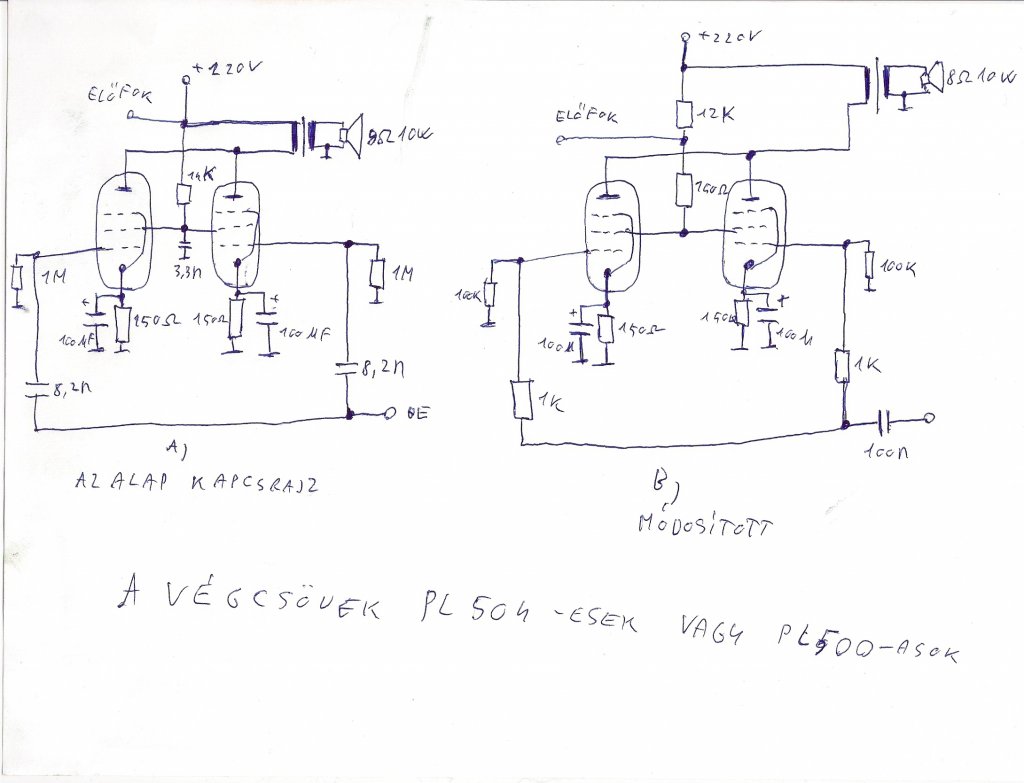 +220V
ELŐFOK
8Ω10W
1M
3,3n
1M
150Ω
150Ω
100µF
100µF
8,2n
8,2n
BE
A)
AZ ALAP KAPCSRAJZ
+220V
8Ω10W
12K
ELŐFOK
100K
100K
150Ω
100µ
100µ
1K
1K
100n
B)
MÓDOSÍTOTT
A VÉGCSÖVEK PL504-ESEK VAGY PL500-ASOK